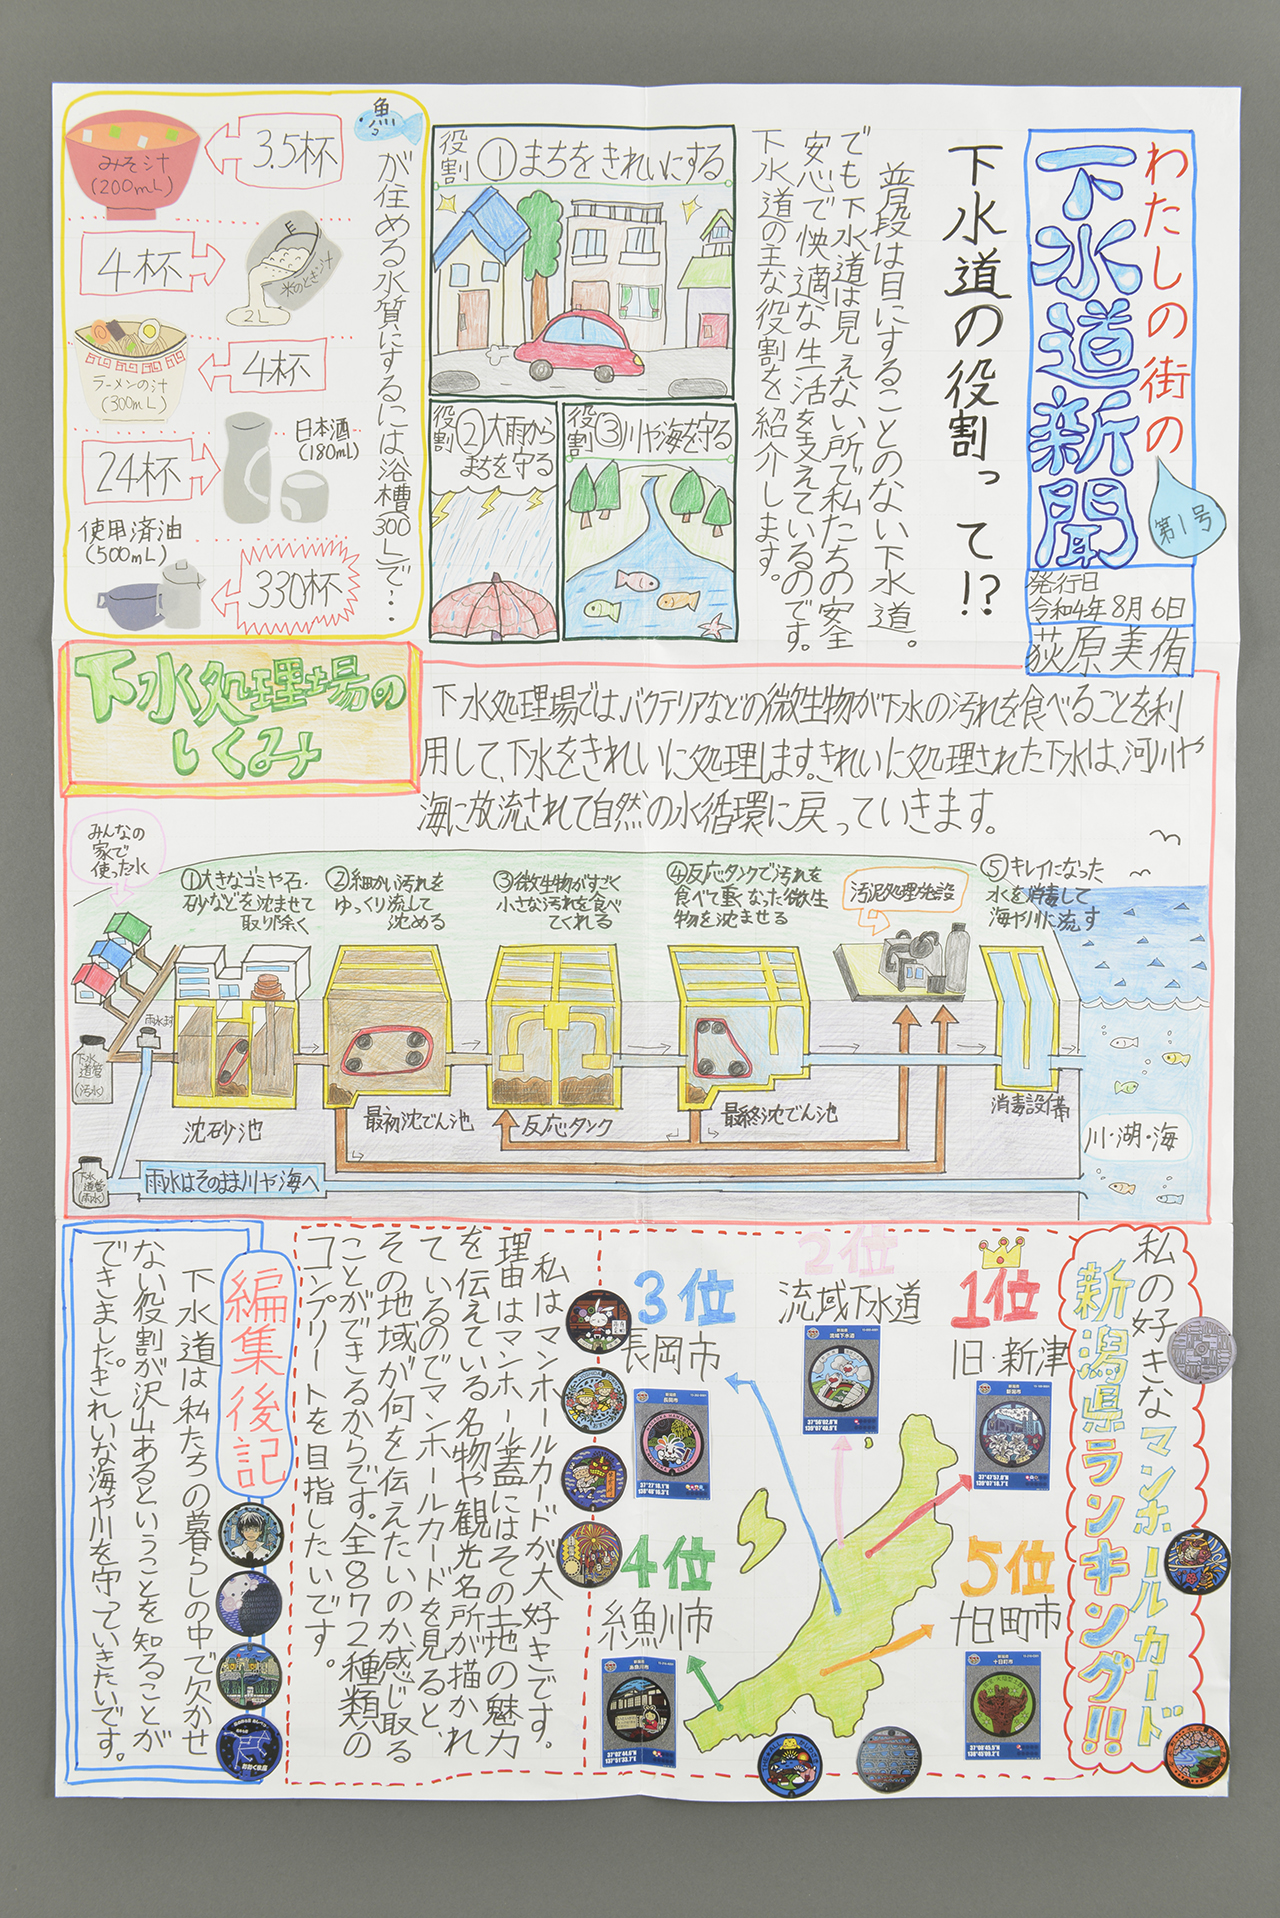 わたしの街の
下水道新聞
第1号
発行日
令和4年8月6日
荻原美侑
下水道の役割って!?
普段は目にすることのない下水道。
でも下水道は見えない所で私たちの安全
安心で快適な生活を支えているのです。
下水道の主な役割を紹介します。
役割①まちをきれいにする
役割②大雨から
まちを守る
役割③川や海を守る
魚が住める水質にするには浴槽300Lで…
みそ汁
(200mL)
3.5杯
4杯
米のとぎ汁
2L
ラーメンの汁
(300mL)
4杯
24杯
日本酒
(180mL)
使用済油
(500mL)
330杯
下水処理場の
しくみ
下水処理場では、バクテリアなどの微生物が下水の汚れを食べることを利
用して、下水をきれいに処理します。きれいに処理された下水は、河川や
海に放流されて自然の水循環に戻っていきます。
みんなの
家で
使った水
①大きなゴミや石・
砂などを沈ませて
取り除く
②細かい汚れを
ゆっくり流して
沈める
③微生物がすごく
小さな汚れを食べ
てくれる
④反応タンクで汚れを
食べて重くなった微生
物を沈ませる
汚泥処理施設
⑤キレイになった
水を消毒して
海や川に流す
雨水ます
下水
道管
(汚水)
沈砂池
最初沈でん池
反応タンク
最終沈でん池
消毒設備
川・湖・海
下水
道管
(雨水)
雨水はそのまま川や海へ
私の好きなマンホールカード
新潟県ランキング!!
1位
旧・新津
2位
流域下水道
3位
長岡市
4位
糸魚川市
5位
十日町市
私はマンホールカードが大好きです。
理由はマンホール蓋にはその土地の魅力
を伝えている名物や観光名所が描かれ
ているのでマンホールカードを見ると、
その地域が何を伝えたいのか感じ取る
ことができるからです。全872種類の
コンプリートを目指したいです。
編集後記
下水道は私たちの暮らしの中で欠かせ
ない役割が沢山あるということを知ることが
できました。きれいな海や川を守っていきたいです。